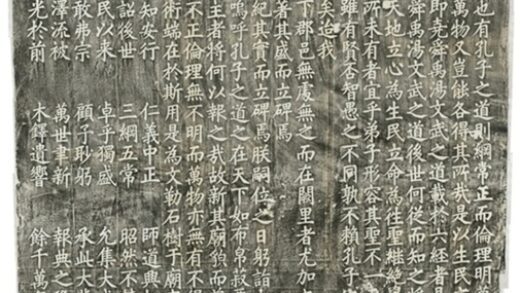 也有孔子之道則綱常正而倫理明
萬物又豈能各得其所哉是以生民
即堯舜禹湯文武之道載於六經者
舜禹湯文武之道後世何從而知之
天地立心為生民立命為往聖繼絕
所未有者宜乎弟子形容其聖不一
雖有賢否智愚之不同孰不賴孔子
矣迨我
下郡邑無處無之而在闕里者尤加
著其盛而立碑焉
紀其實而立碑焉朕嗣位之日躬詣
嗚呼孔子之道之在天下如布帛菽
主者將何以報之哉故新其廟貌而
不正倫理無不明而萬物亦無有不得
術端在於斯用是為文勒石樹于廟
知安行 仁義中正 師道興
詔後世 三綱五常 昭然不
民以來 卓乎獨盛 允集大
敢弗宗 顧予眇躬 承此大
澤流被 萬世聿新 報典之
光於前 木鐸遺響 餘千萬